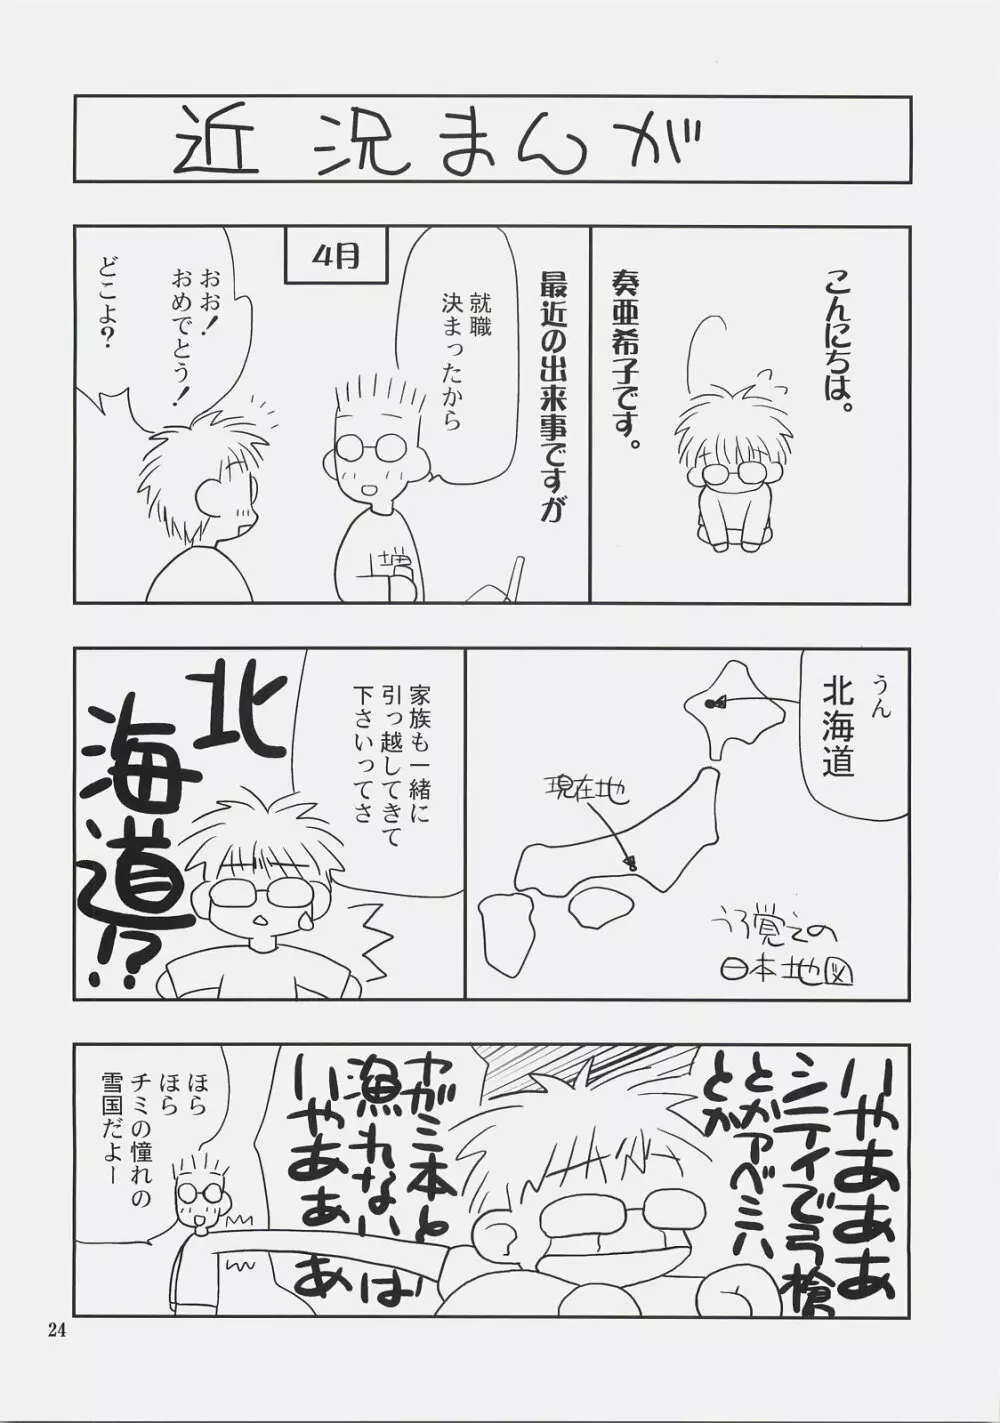 近況まんが
こんにちは。
奏亜希子です。
最近の出来事ですが
4月
就職
決まったから
おお!
おめでとう!
どこよ?
うん
北海道
現在地
うろ覚えの
日本地図
家族も一緒に
引っ越してきて
下さいってさ
北
海
道!?
いやあああ
シティで弓槍
とかアベミハ
とか
ヤガミ本と
漁れないは
いやあああ
ほら
ほら
チミの憧れの
雪国だよー
24